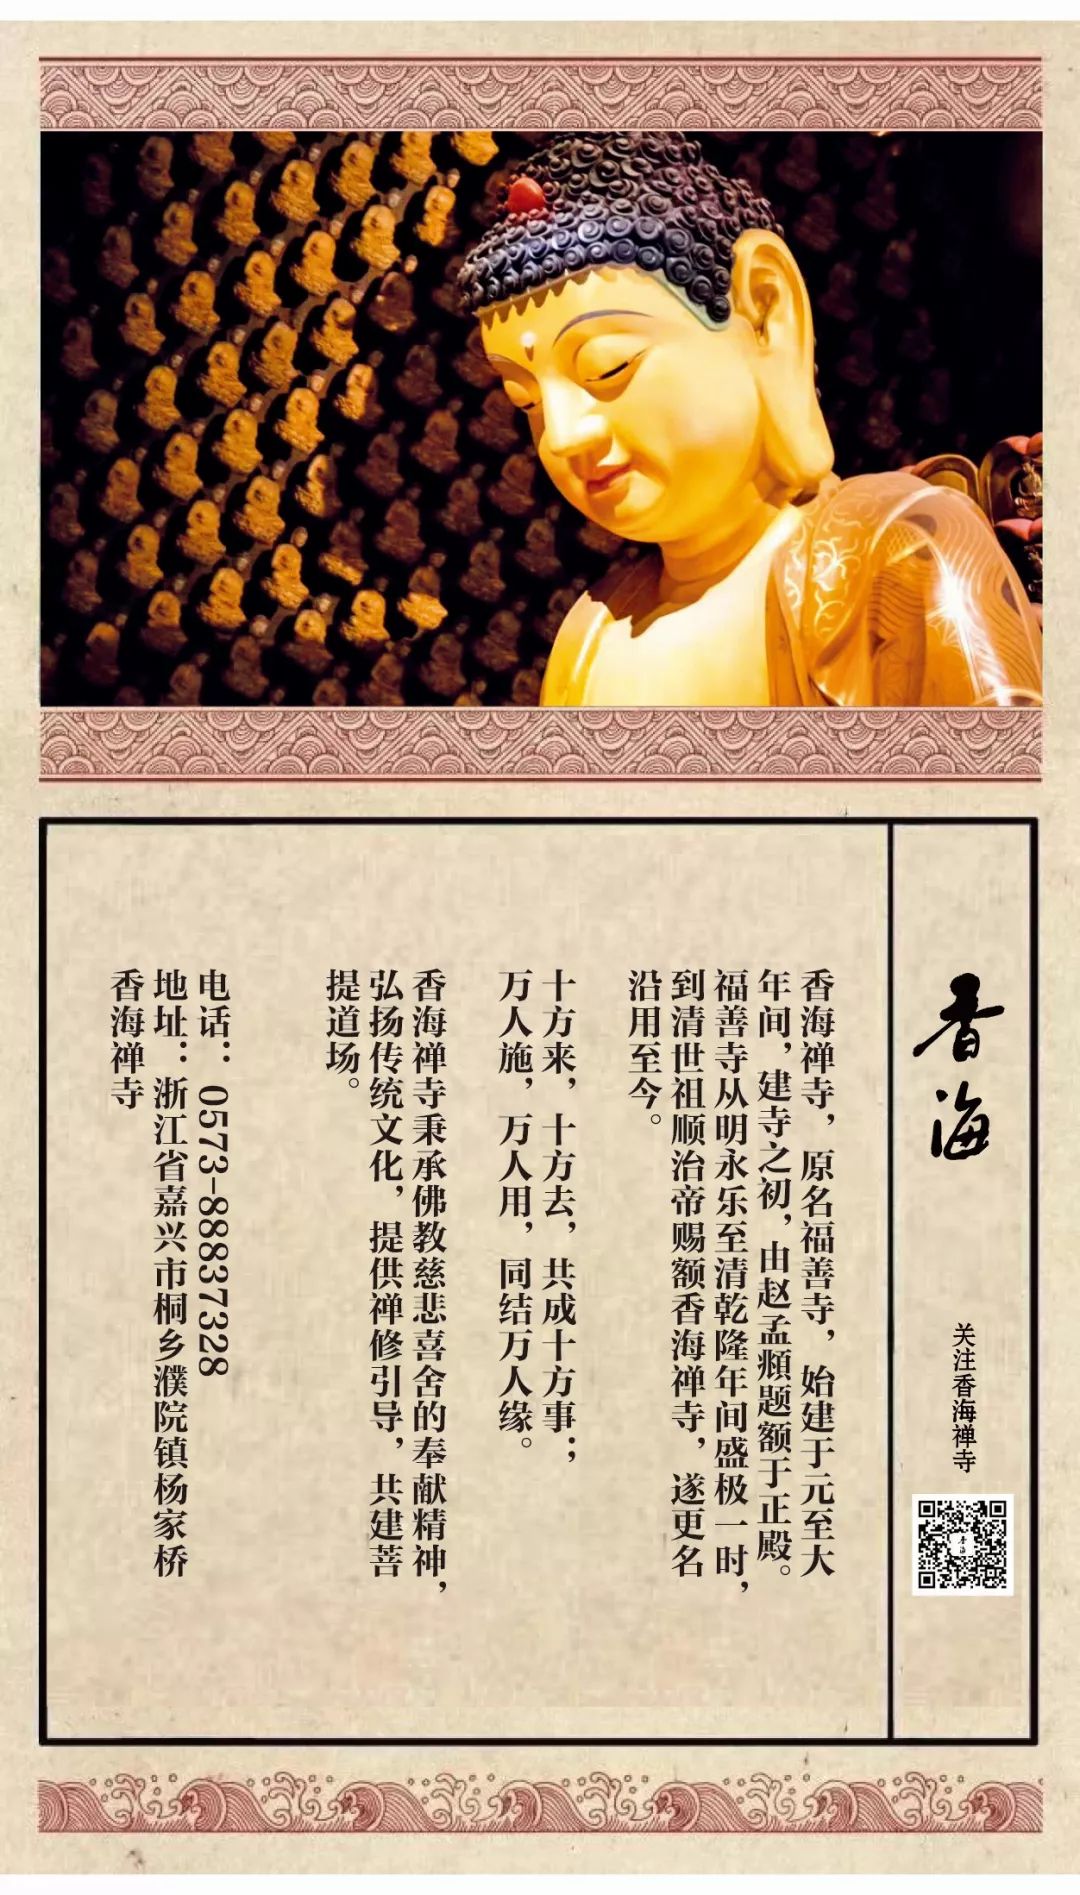 香海
关注香海禅寺
香海禅寺，原名福善寺，始建于元至大
年间，建寺之初，由赵孟頫题额于正殿。
福善寺从明永乐至清乾隆年间盛极一时，
到清世祖顺治帝赐额香海禅寺，遂更名
沿用至今。
十方来，十方去，共成十方事；
万人施，万人用，同结万人缘。
香海禅寺秉承佛教慈悲喜舍的奉献精神，
弘扬传统文化，提供禅修引导，共建菩
提道场。
电话：0573-88837328
地址：浙江省嘉兴市桐乡濮院镇杨家桥
香海禅寺